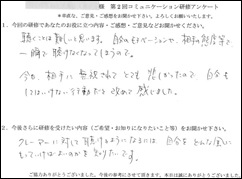 様 第2回コミュニケーション研修アンケート
*率直な、ご意見・ご感想をお聞かせ下さい。よろしくお願いいたします。
1. 今回の研修であなたのお役に立つ内容・ご感想・ご意見などお聞かせください。
聴くことは難しいと思います。自分のモチベーションや、相手の態度等で
一瞬で聴けなくなってしまうので。
今日、相手に無視されてとても悲しかったので、自分を
しては いけない 改めて感じました。
2. 今後さらに研修を受けたい内容(ご希望・お知りになりたいこと等)をお聞かせ下さい。
クレーマーに対して聴けるようになるには 自分をどんな風に
もっていけばよいのかを知りたいです。
ご協力ありがとうございました。